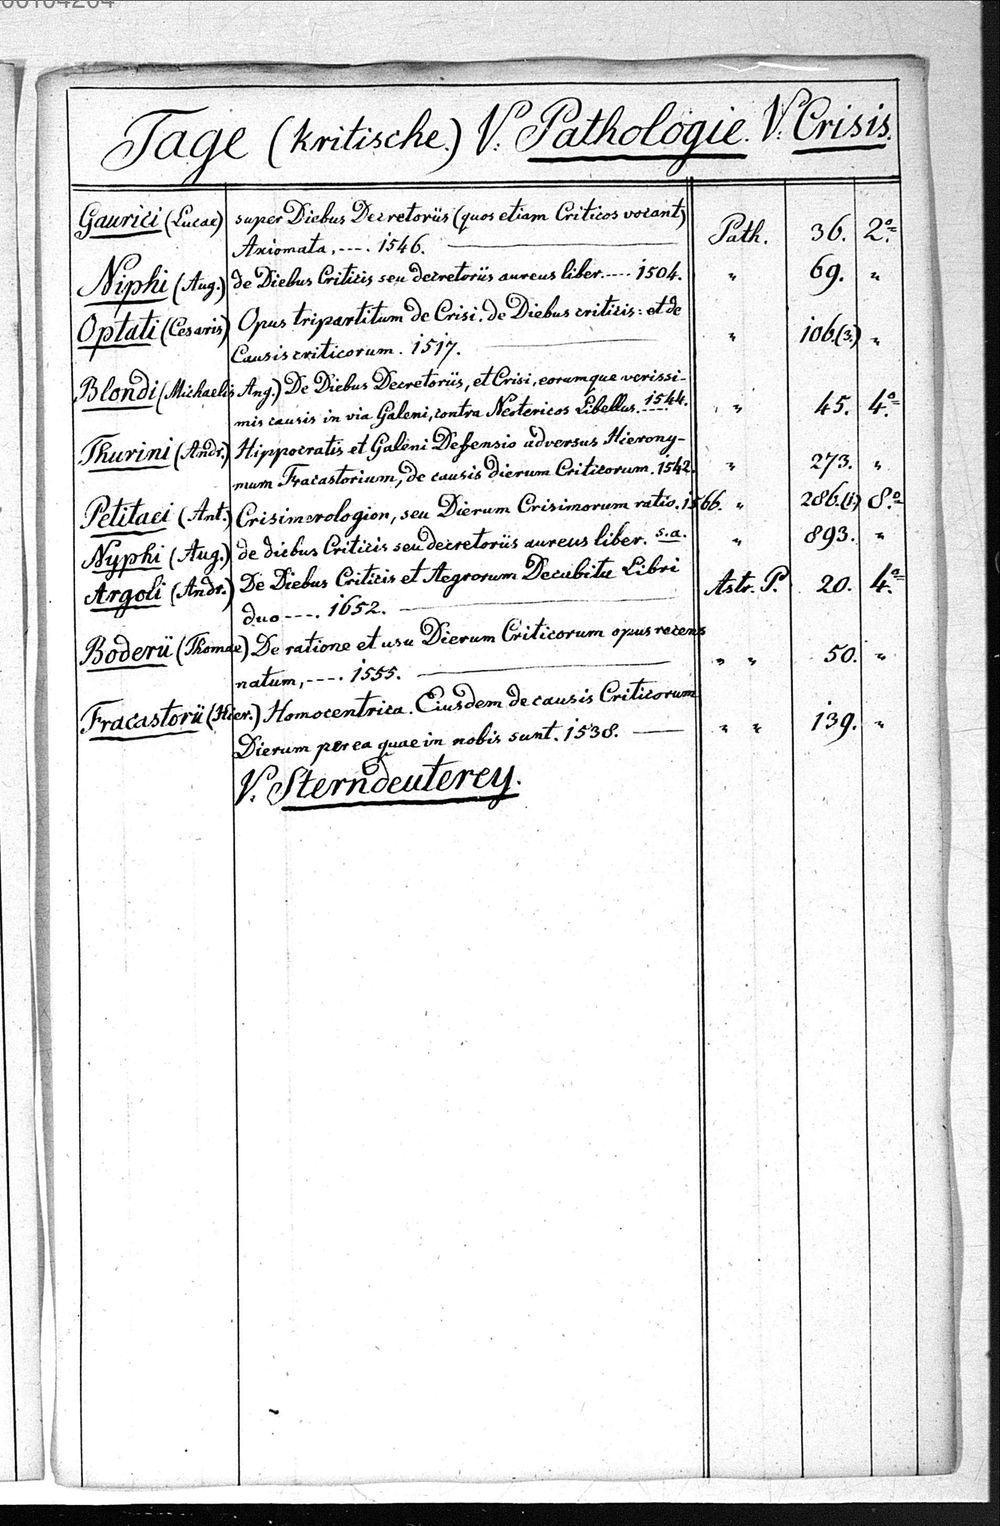 Tage (kritische.) V. Pathologie. V. Crisis.
Gaurici (Lucae) super Diebus Decretoriis (quos etiam Criticos vocant)
Axiomata, ---. 1546. Path. 36. 2º
Niphi (Aug.) de Diebus Criticis seu decretoriis aureus liber. ---- 1504. " 69. "
Optati (Cesaris) Opus tripartitum de Crisi. de Diebus criticis: et de
Causis criticorum. 1517. " 106.(3.) "
Blondi (Michaelis Ang.) De Diebus Decretoriis, et Crisi, eorumque verissi-
mis causis in via Galeni, contra Neotericos Libellus. ---- 1544. " 45. 4º
Thurini (Andr.) Hippocratis et Galeni Defensio adversus Hierony-
mum Fracastorium, de causis dierum Criticorum. 1542. " 273. "
Petitaei (Ant.) Crisimerologion, seu Dierum Crisimorum ratio. 1566. " 286.(1.) 8º
Nyphi (Aug.) de diebus Criticis seu decretoriis aureus liber. s.a. " 893. "
Argoli (Andr.) De Diebus Criticis et Aegrorum Decubitu Libri
duo ---. 1652. Astr. P. 20. 4º
Boderii (Thomae) De ratione et usu Dierum Criticorum opus recens
natum, ---. 1555. " " 50. "
Fracastorii (Hier.) Homocentrica. Eiusdem de causis Criticorum
Dierum per ea quae in nobis sunt. 1538. " " 139. "
V. Sterndeuterey.